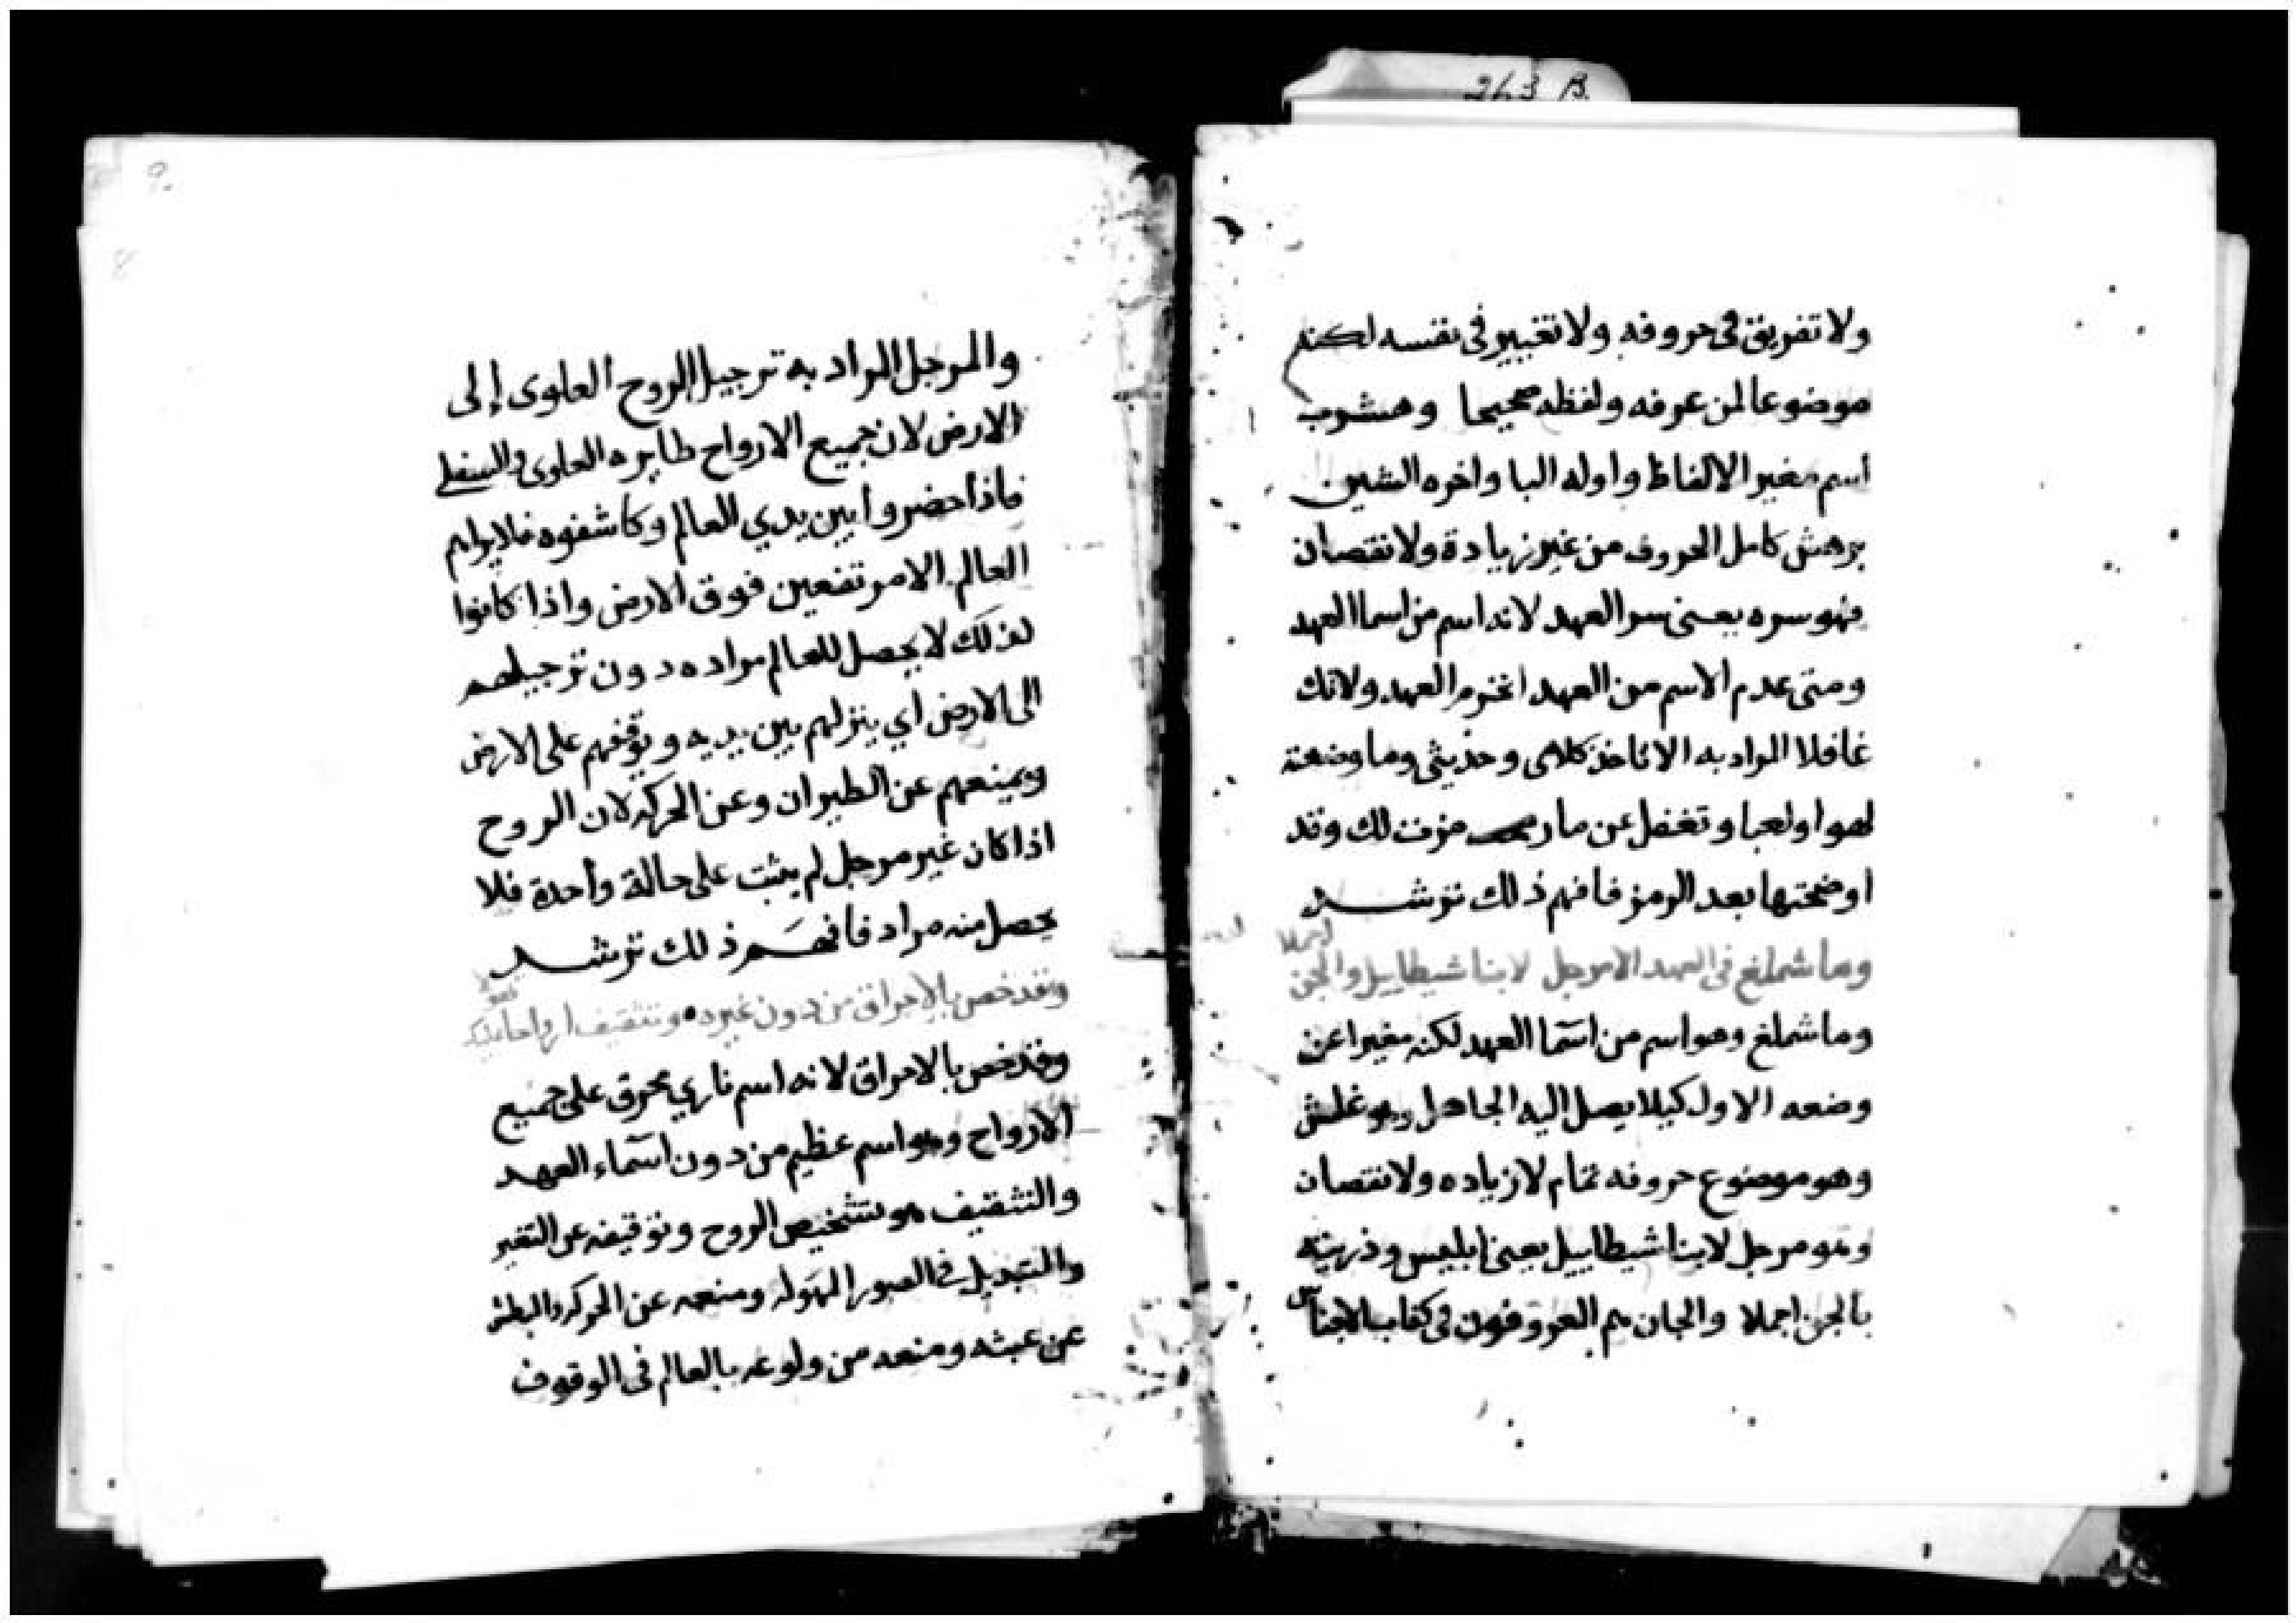 263 B.
ولا تفريق فى حروفه ولا تغيير فى نفسه لكنه
موضوعا لمن عرفه ولفظه صحيحا وهشرب
أسم مغير الالفاظ واوله البا واخره الشين
برهش كامل الحروف من غير زيادة ولا نقصان
فهو سره يعنى سر العهد لانه اسم من اسما العهد
ومتى عدم الاسم من العهد انخرم العهد ولاتك
غافلا المراد به الا تاخذ كلامى وحديثى وما وضعته
لهوا ولعبا وتغفل عن ما رمزت لك وقد
اوضحتها بعد الرمز فافهم ذلك ترشد
وما شملغ فى العهد الا مرجل لابنا شيطاييل والجن
اجملا
وما شملغ وهو اسم من اسمآ العهد لكنه مغيرا عن
وضعه الاول كيلا يصل اليه الجاهل وهو غلمش
وهو موضوع حروفه تمام لا زياده ولا نقصان
وهو مرجل لابنا شيطاييل يعنى إبليس وذريته
بالجن اجملا والجان هم المعروفون فى كتاب الاجناس
9.
8
والمرجل المراد به ترجيل الروح العلوى إلى
الارض لان جميع الارواح طايره العلوى والسفلى
فاذا حضروا بين يدي العالم وكاشفوه فلا يراهم
العالم الا مرتفعين فوق الارض واذا كانوا
كذلك لا يحصل للعالم مراده دون ترجيلهم
الى الارض اي ينزلهم بين يديه ويوقفهم على الارض
ويمنعهم عن الطيران وعن الحركه لان الروح
اذا كان غير مرجل لم يثبت على حالة وأحدة فلا
يحصل منه مراد فافهم ذلك ترشد
وقد خص بالإحراق من دون غيره وتثقيف ارواحا
وقد خص بالاحراق لانه اسم ناري محرق على جميع
الارواح وهو اسم عظيم من دون اسمآء العهد
والتثقيف هو تشخيص الروح وتوقيفه عن التغير
والتبديل فى الصور المهَوله ومنعه عن الحركه والبطش
عن عبثه ومنعه من ولوعه بالعالم فى الوقوف